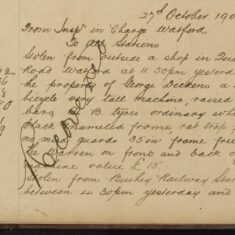 27th October 190
From Inspr in Charge Watford
To all Stations
Stolen from outside a shop in Que
Road Watford at 11.30pm yesterd
the property of George Dickens a
bicycle very tall machine, raised
bars, B. types ordinary wh
black enamelled frame, rat trap
no mud guards 33 in frame free
The Warren on front and back of
machine value £15
Stolen from Bushey Railway Sta
between 4.30pm yesterday and